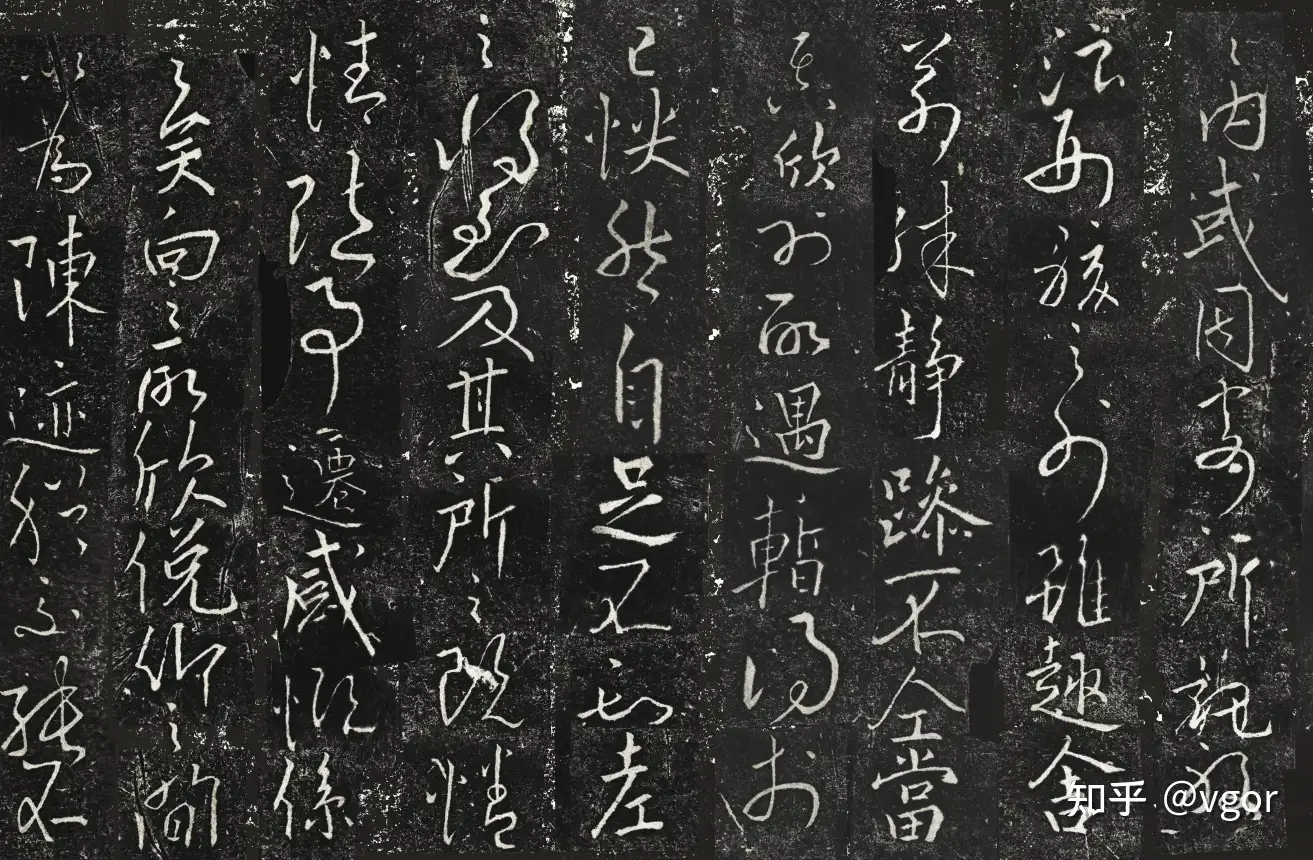 之内或因寄所託放
浪形骸之外雖趣舍
萬殊靜躁不仝當
其欣於所遇暫得於
己怏然自足不知老
之將至及其所之既惓
情隨事遷感慨係
之矣向之所欣俛仰之間
以為陳迹猶不能不
知乎 @vgor